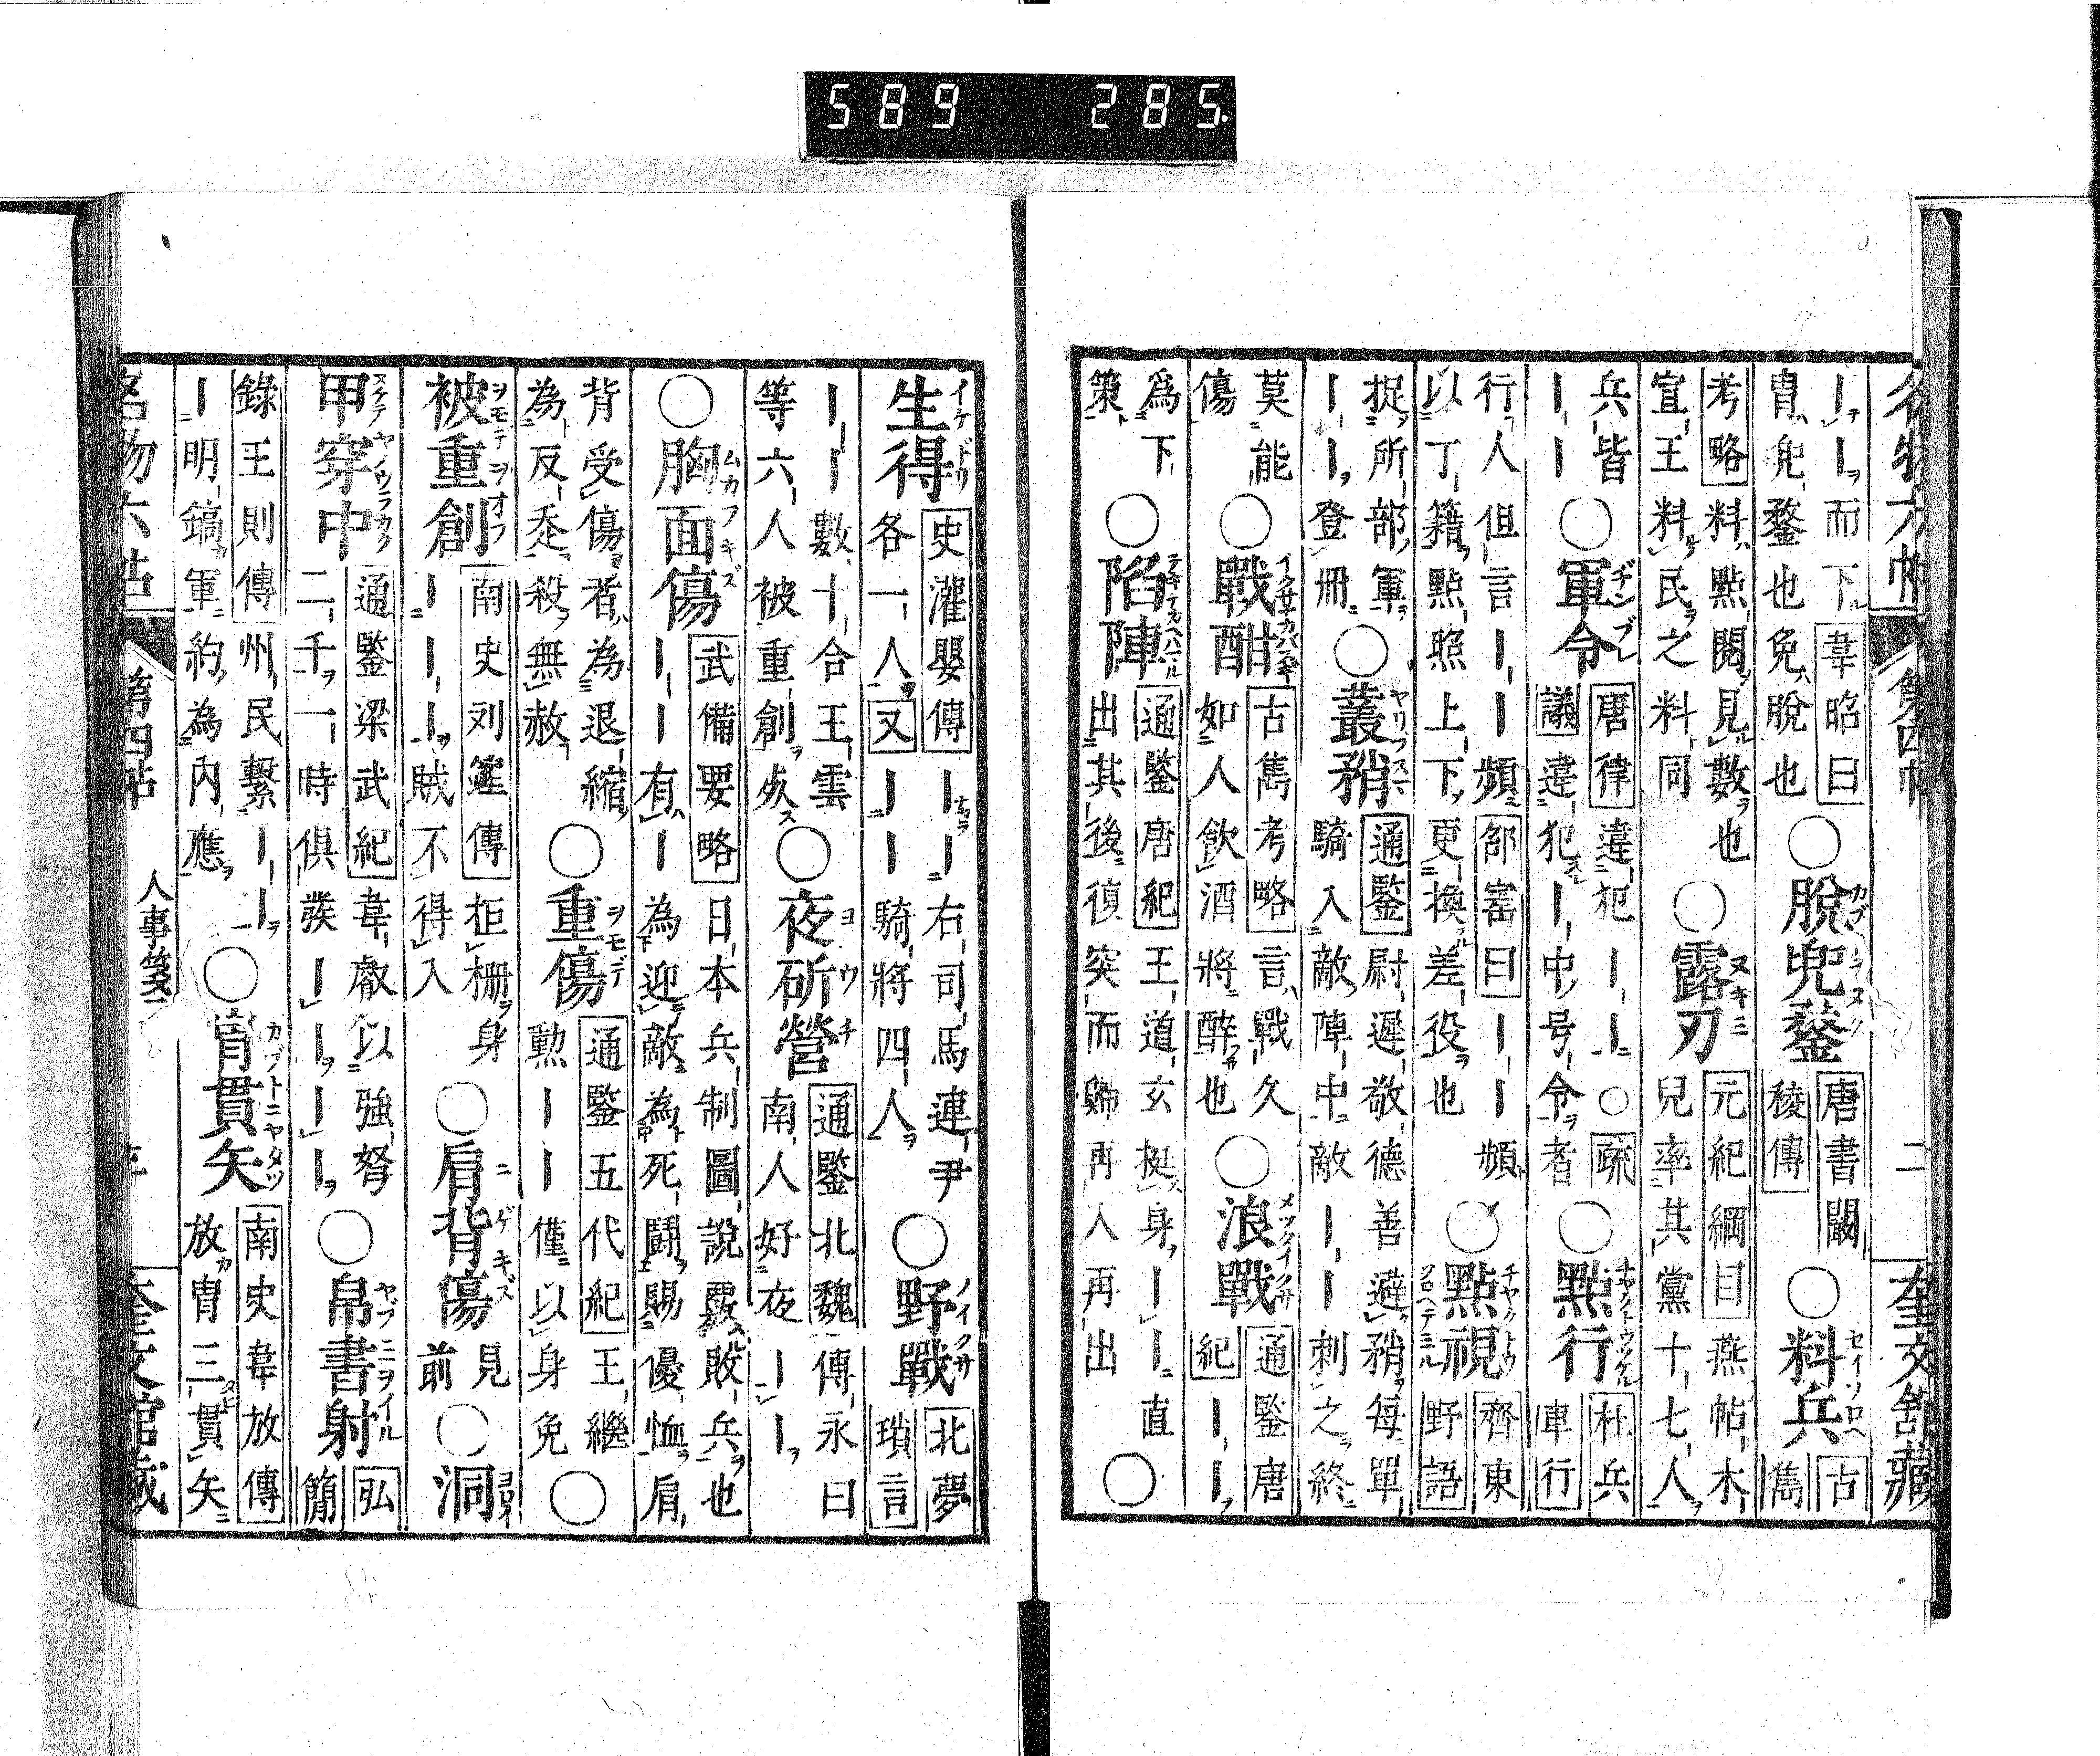 589 285
名物六帖 第四帖 二 奎文館藏
｜ヲ｜ヲ而下ル 韋昭曰 冑ハ兜鍪也免ハ脫也 ○脫兜鍪 唐書闞稜傳 ○料兵 古雋
考略 料ハ點閱見數ヲ也 宣王料民ヲ之料同 ○露刃 元紀綱目 燕帖木兒率其黨十七人ヲ
兵皆｜｜ ○軍令 唐律 違犯｜｜ ○ 疏議 違犯｜中号令ヲ者 ○點行 杜兵車行
行人但言｜｜頻 郃寚曰 ｜｜頻以丁籍ヲ點照上下更換差役ヲ也 ○點視 齊東野語
捉所部軍ヲ｜｜登冊ニ ○叢矟 通鑒 尉遲敬德善避矟ヲ每單騎入敵陣中敵｜｜刺之ヲ終
莫能傷 ○戰酣 古雋考略 言戰久如人飲酒將醉也 ○浪戰 通鑒唐紀 ｜｜ヲ
爲下策 ○陷陣 通鑒唐紀 王道玄挺身ヲ｜｜直出其後ニ復突而歸再入再出 ○
生得 史灌嬰傳 各一人ヲ 又 ｜｜右司馬連尹｜｜騎將四人ヲ ○野戰 北夢瑣言
｜｜數十合王雲等六人被重創ヲ ○夜斫營 通鑒 北魏傳永曰南人好夜｜｜ヲ
○胸面傷 武備要略 日本兵制圖說覈敗兵ヲ也｜｜有｜為迎敵為死鬪ヲ賜優恤ヲ肩
背受傷ヲ者ハ為退縮ヲ為反走ヲ殺ヲ無赦 ○重傷 通鑒五代紀 王繼勲｜｜僅以身免 ○
被重創 南史刘䈣傳 拒柵ヲ身｜｜｜ヲ賊不得入 ○肩背傷 見前 ○洞
甲穿中 通鑒梁武紀 韋叡以強弩二千ヲ一時俱發｜｜ヲ｜｜ヲ ○帛書射 弘簡
錄王則傳 州民繫｜｜ヲ｜明鎬軍約為內應ヲ ○冑貫矢 南史韋放傳 放冑三貫矢ニ
名物六帖 第四帖 人事箋二 奎文館藏